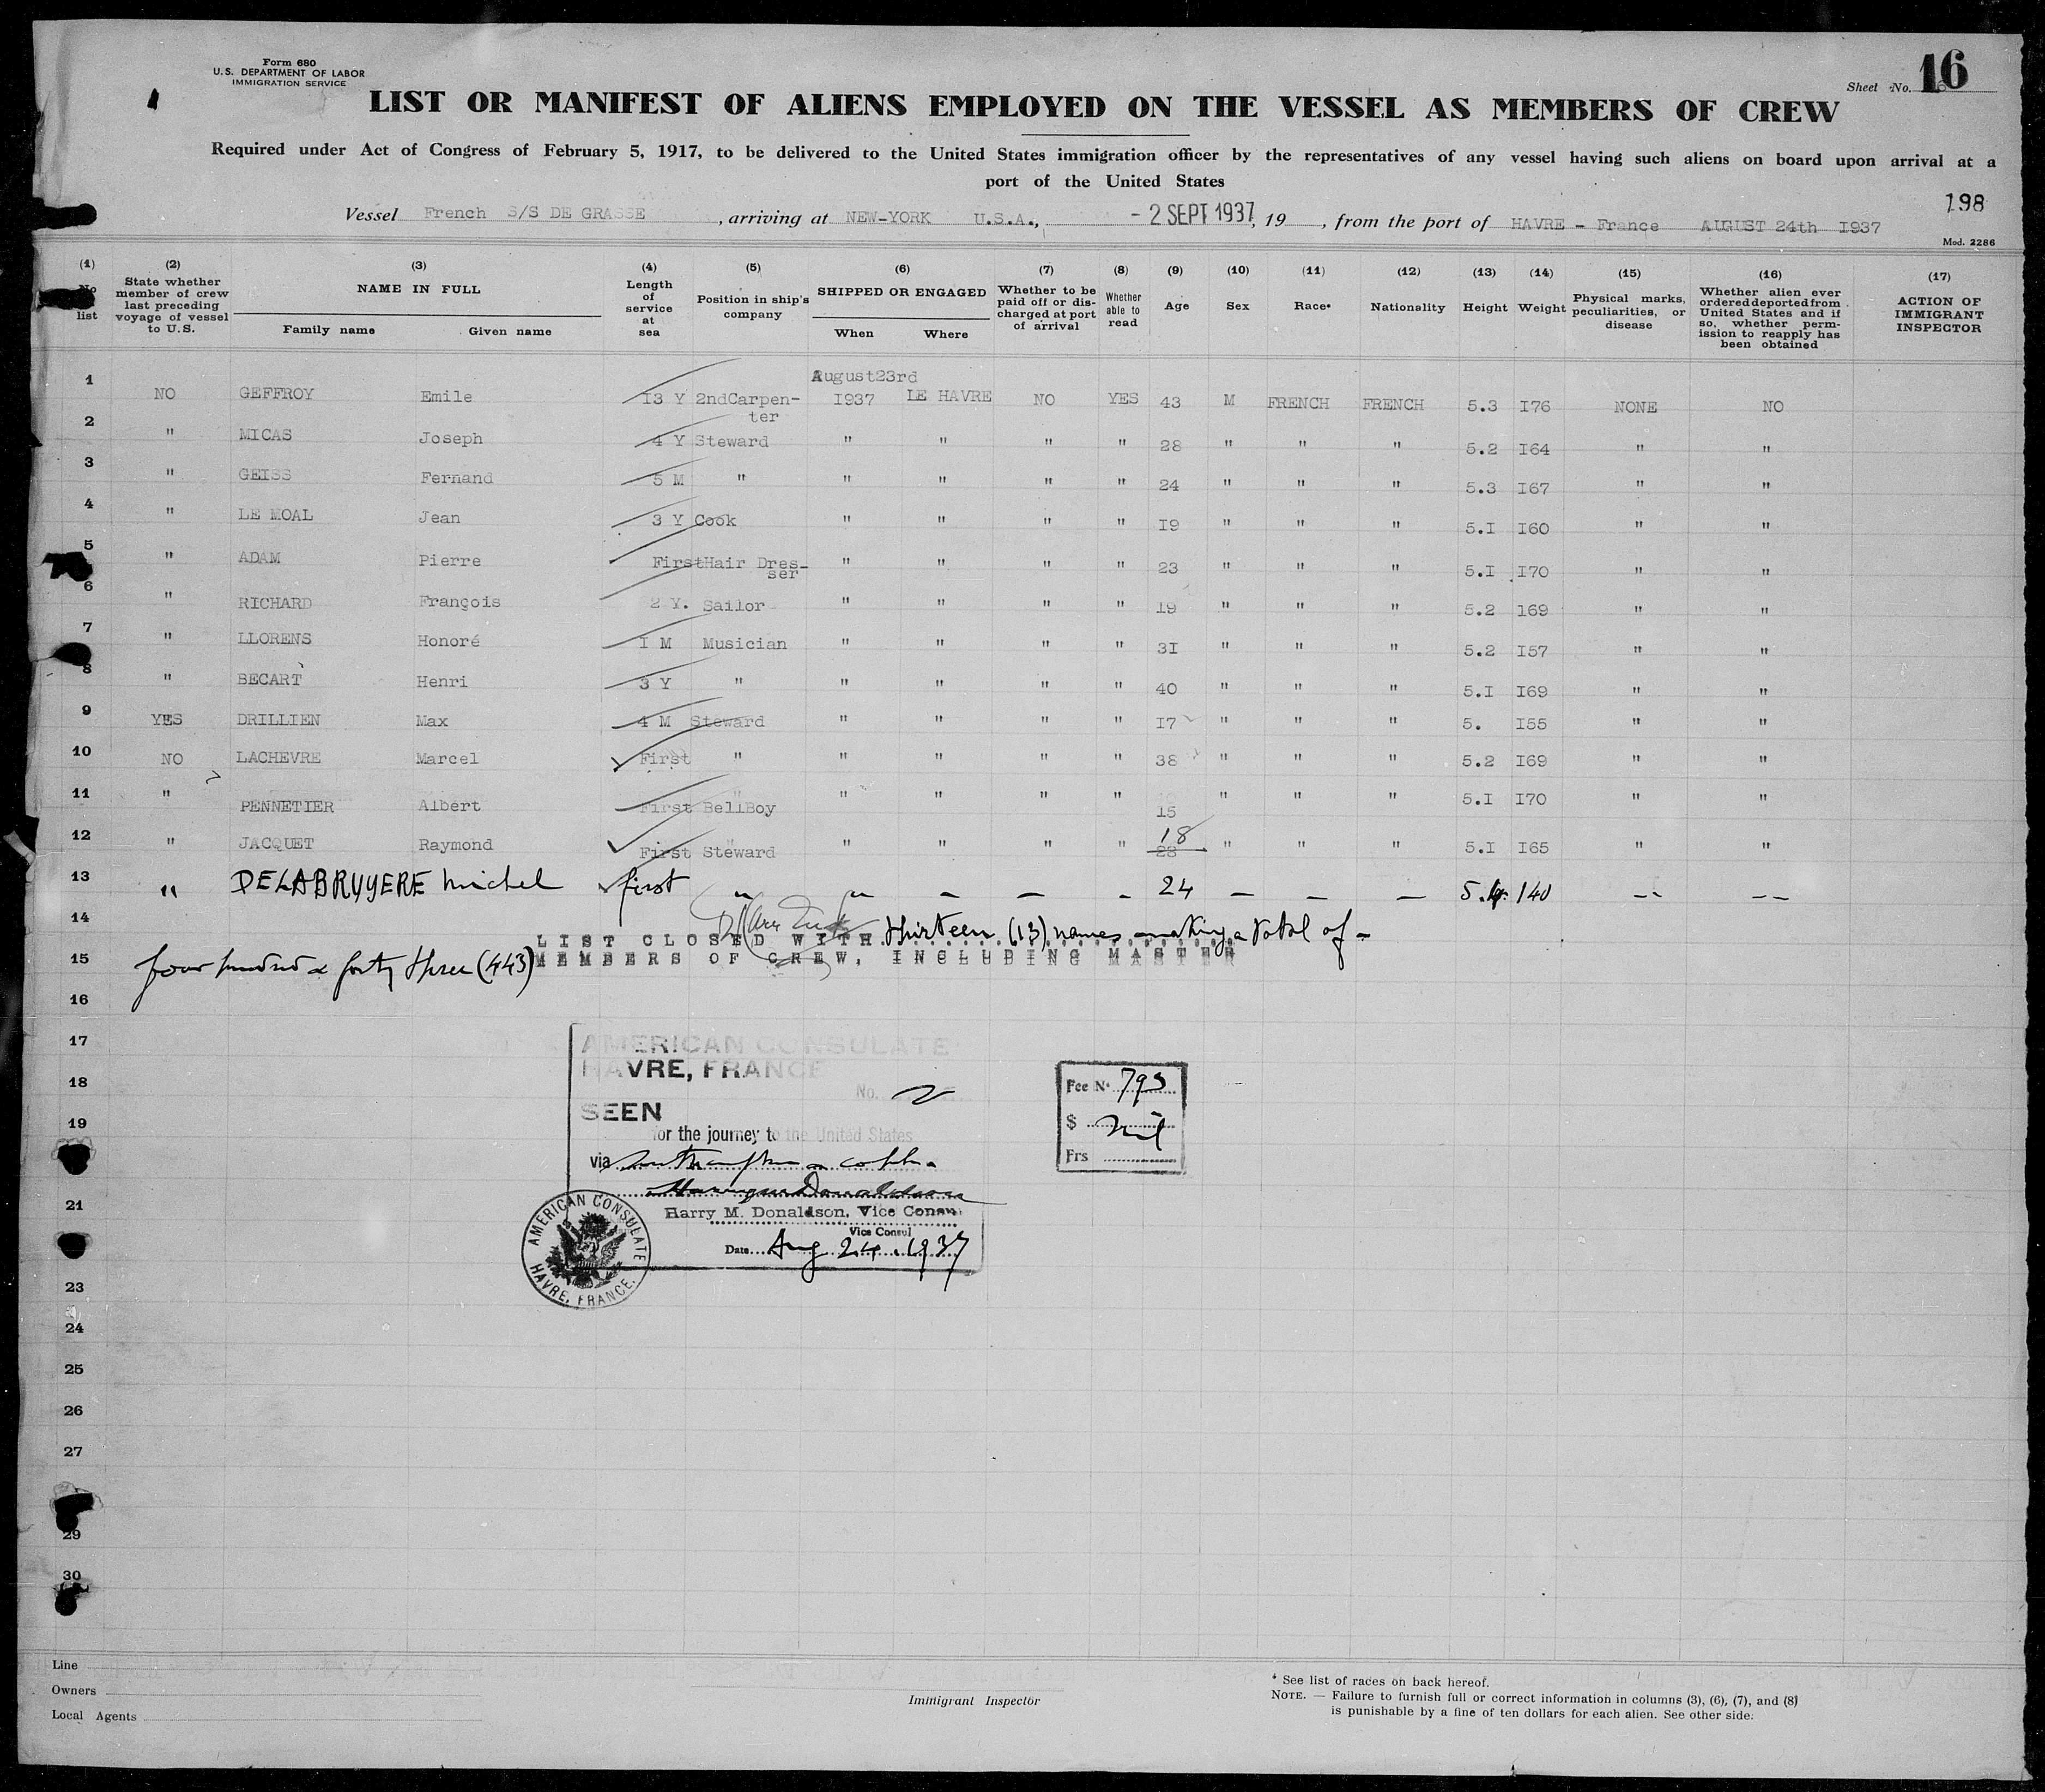 Form 680
U.S. DEPARTMENT OF LABOR
IMMIGRATION SERVICE
Sheet No. 16
LIST OR MANIFEST OF ALIENS EMPLOYED ON THE VESSEL AS MEMBERS OF CREW
Required under Act of Congress of February 5, 1917, to be delivered to the United States immigration officer by the representatives of any vessel having such aliens on board upon arrival at a
port of the United States
198
Vessel French S/S DE GRASSE, arriving at NEW-YORK U.S.A., - 2 SEPT 1937, 19, from the port of HAVRE - France AUGUST 24th I937
Mod. 2286
(1) No list (2) State whether member of crew last preceding voyage of vessel to U.S. (3) NAME IN FULL Family name Given name (4) Length of service at sea (5) Position in ship's company (6) SHIPPED OR ENGAGED When Where (7) Whether to be paid off or discharged at port of arrival (8) Whether able to read (9) Age (10) Sex (11) Race* (12) Nationality (13) Height (14) Weight (15) Physical marks, peculiarities, or disease (16) Whether alien ever ordered deported from United States and if so, whether permission to reapply has been obtained (17) ACTION OF IMMIGRANT INSPECTOR
1 NO GEFFROY Emile I3 Y 2ndCarpen-ter August23rd I937 LE HAVRE NO YES 43 M FRENCH FRENCH 5.3 I76 NONE NO
2 " MICAS Joseph 4 Y Steward " " " " 28 " " " 5.2 I64 " "
3 " GEISS Fernand 5 M " " " " " 24 " " " 5.3 I67 " "
4 " LE MOAL Jean 3 Y Cook " " " " I9 " " " 5.I I60 " "
5 " ADAM Pierre First Hair Dres-ser " " " " 23 " " " 5.I I70 " "
6 " RICHARD François 2 Y. Sailor " " " " 19 " " " 5.2 169 " "
7 " LLORENS Honoré I M Musician " " " " 3I " " " 5.2 I57 " "
8 " BECART Henri 3 Y " " " " " 40 " " " 5.I I69 " "
9 YES DRILLIEN Max 4 M Steward " " " " I7 " " " 5. I55 " "
10 NO LACHEVRE Marcel First " " " " " 38 " " " 5.2 I69 " "
11 " PENNETIER Albert First BellBoy " " " " 15 " " " 5.I I70 " "
12 " JACQUET Raymond First Steward " " " " 18 28 " " " 5.I I65 " "
13 " DELABRUYERE Michel first " " - - - 24 - - - 5.4 140 -- --
14 LIST CLOSED WITH thirteen (13) names making a total of -
15 four hundred & forty three (443) MEMBERS OF CREW, INCLUDING MASTER
16
17
18
19
21
23
24
25
26
27
29
30
AMERICAN CONSULATE
HAVRE, FRANCE
No. 2
SEEN
for the journey to the United States
via Southampton & cobh.
Harry M. Donaldson
Harry M. Donaldson, Vice Consul
Vice Consul
Date Aug 24, 1937
AMERICAN CONSULATE HAVRE, FRANCE.
Fee No. 793
$ nil
Frs
Line
Owners
Local Agents
Immigrant Inspector
* See list of races on back hereof.
NOTE. — Failure to furnish full or correct information in columns (3), (6), (7), and (8)
is punishable by a fine of ten dollars for each alien. See other side.